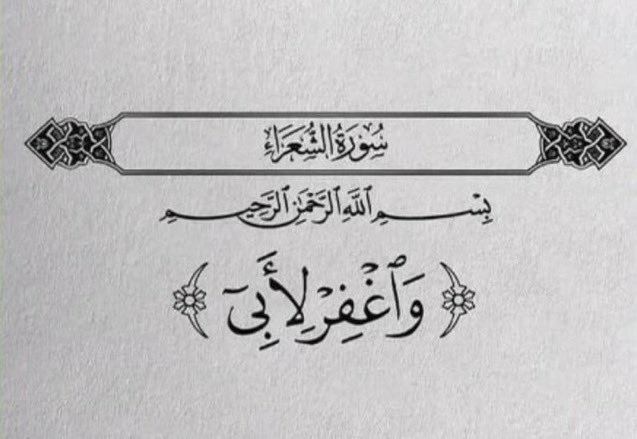 سُورَةُ الشُّعَرَاءِ
بِسْمِ ٱللَّهِ ٱلرَّحْمَٰنِ ٱلرَّحِيمِ
﴿ وَٱغْفِرْ لِأَبِىٓ ﴾